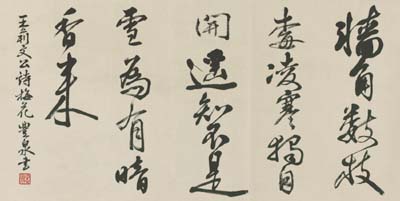 墙角数枝
梅凌寒独自
開遥知不是
雪為有暗
香来
王荆文公詩梅花豊泉書